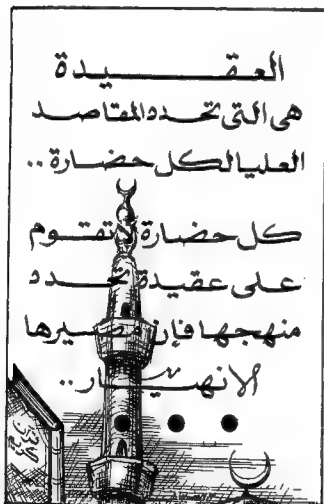 العقيدة
هى التى تحدد المقاصد
العليا لكل حضارة..
كل حضارة لا تقوم
على عقيدة تحدد
منهجها فإن مصيرها
الانهيار..